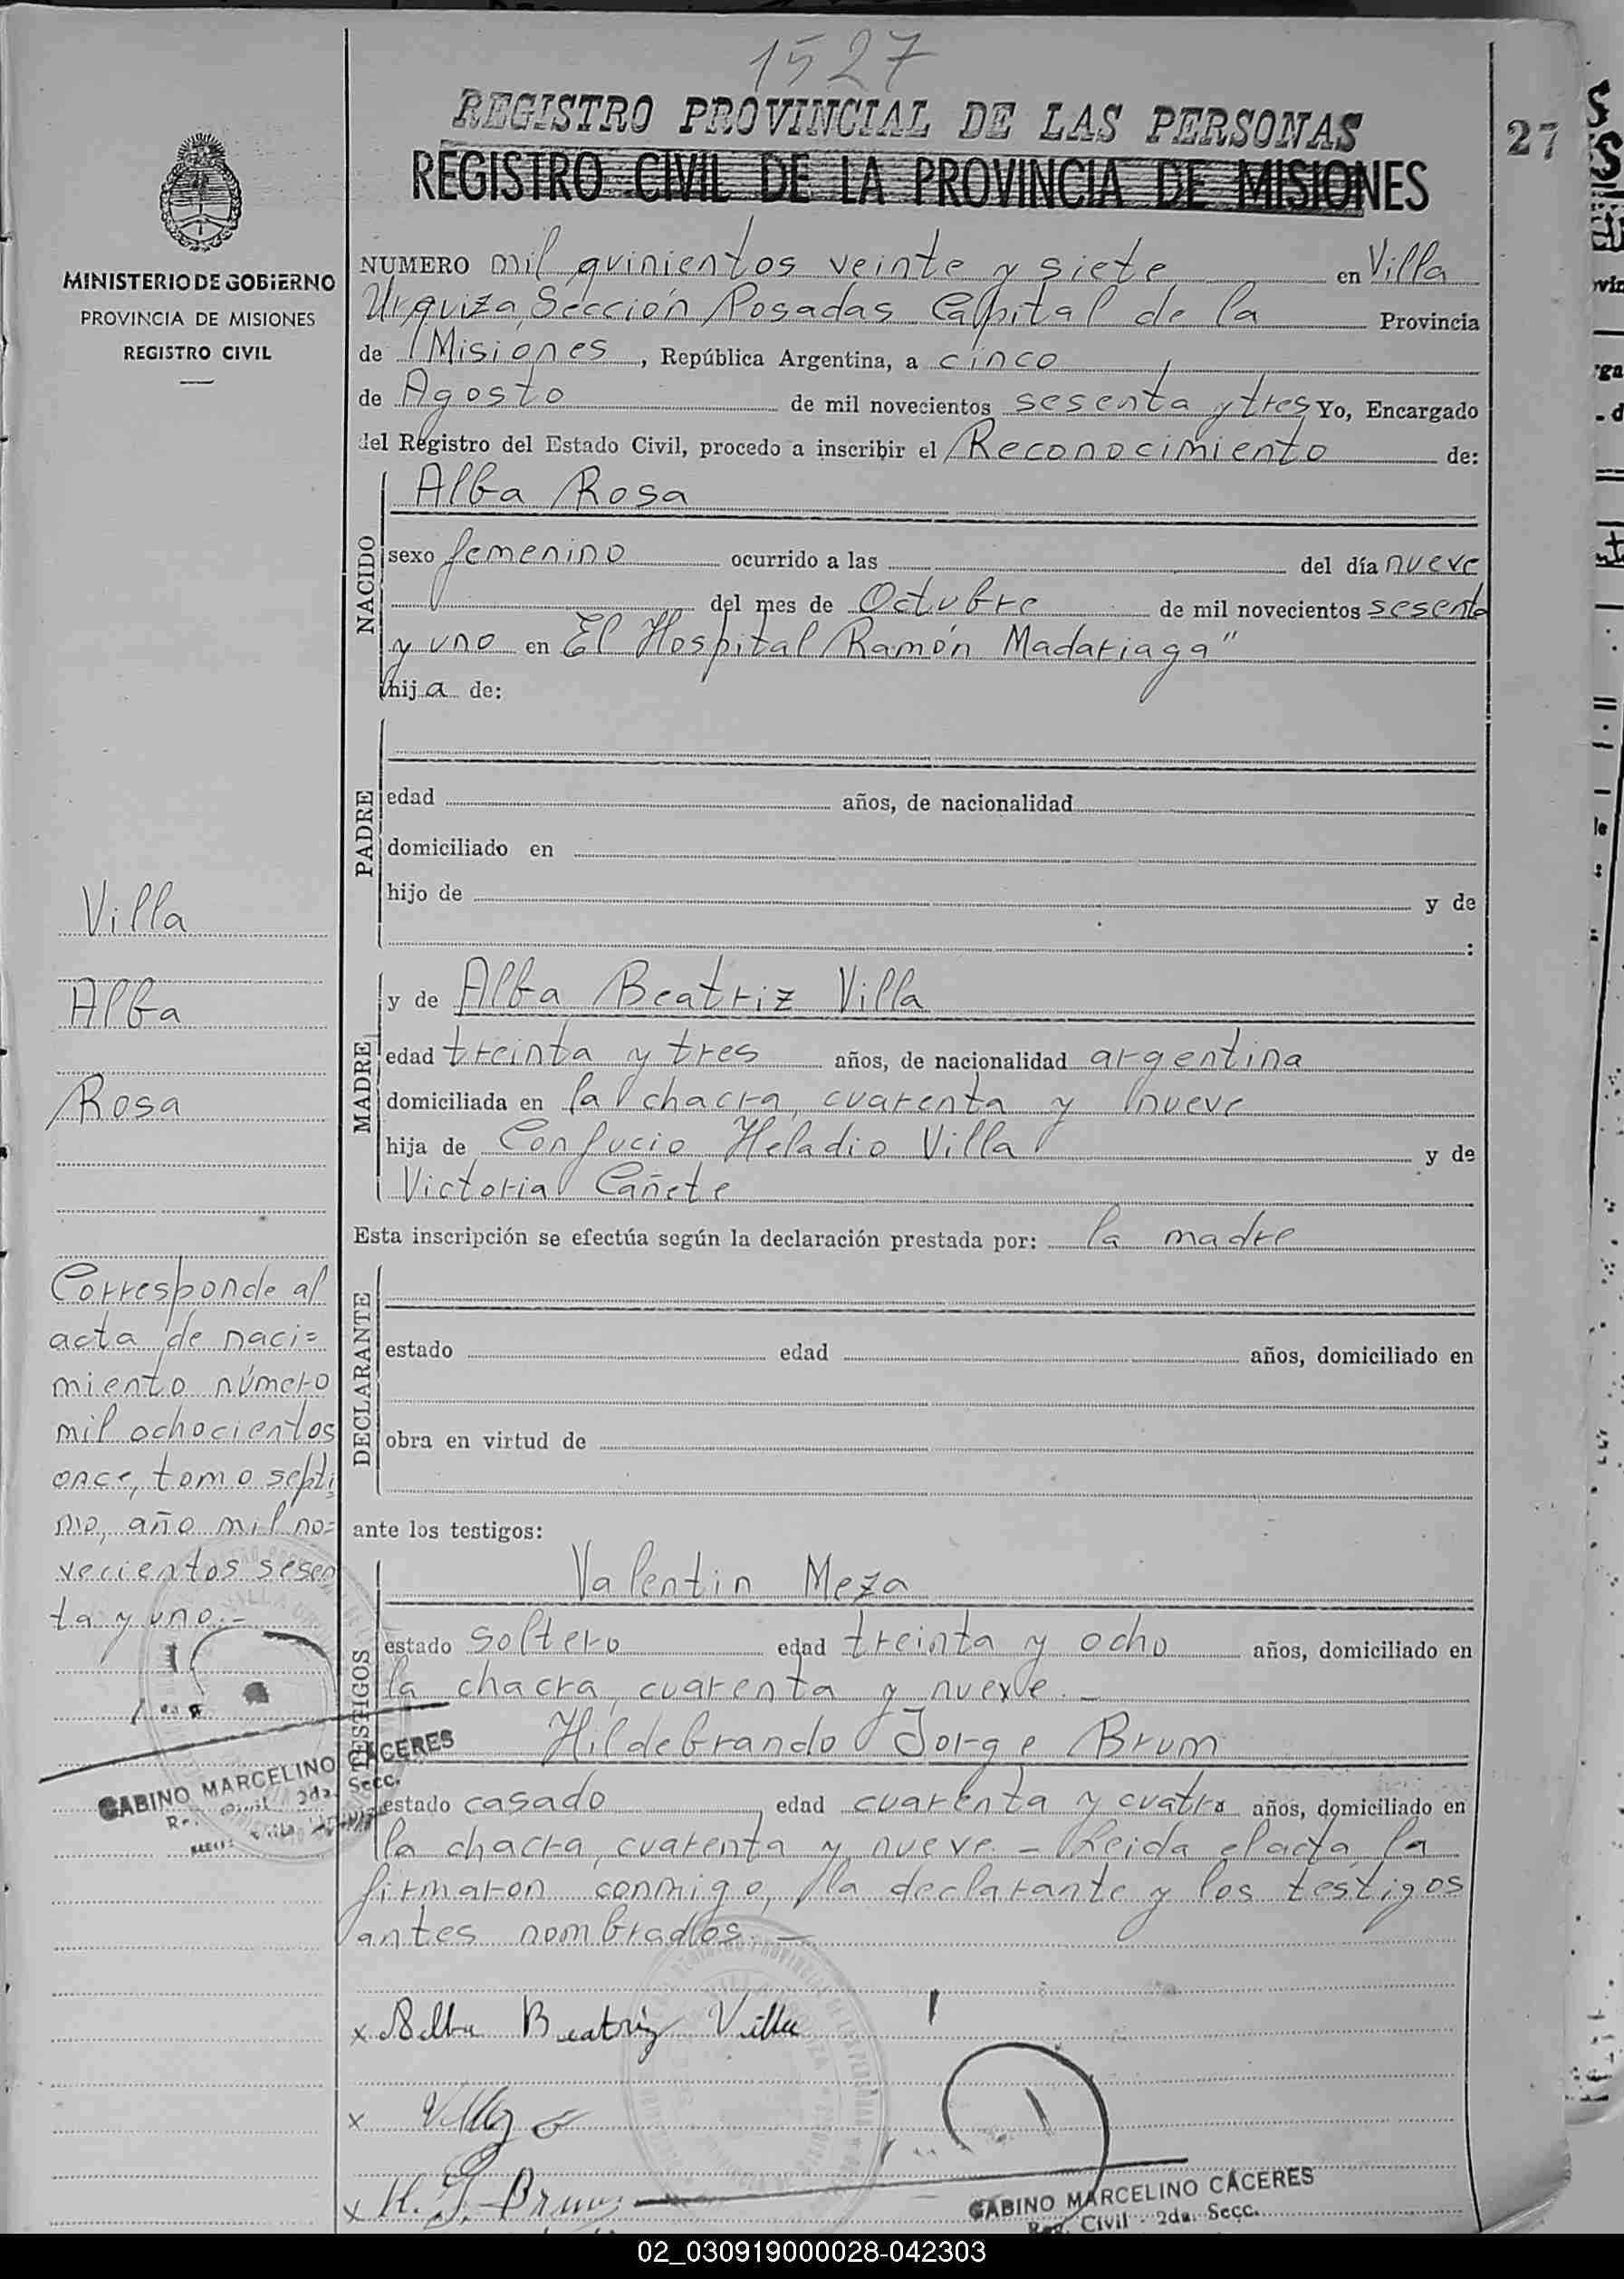 1527
REGISTRO PROVINCIAL DE LAS PERSONAS
27
REGISTRO CIVIL DE LA PROVINCIA DE MISIONES
MINISTERIO DE GOBIERNO
PROVINCIA DE MISIONES
REGISTRO CIVIL
NUMERO mil quinientos veinte y siete en Villa
Urquiza, Sección Posadas Capital de la Provincia
de Misiones, República Argentina, a cinco
de Agosto de mil novecientos sesenta y tres Yo, Encargado
del Registro del Estado Civil, procedo a inscribir el Reconocimiento de:
NACIDO
Alba Rosa
sexo femenino ocurrido a las del día nueve
del mes de Octubre de mil novecientos sesenta
y uno en El Hospital Ramón Madariaga"
hija de:
PADRE
edad años, de nacionalidad
domiciliado en
hijo de y de
:
MADRE
y de Alba Beatriz Villa
edad treinta y tres años, de nacionalidad argentina
domiciliada en la chacra, cuarenta y nueve
hija de Confucio Heladio Villa y de
Victoria Cañete
Esta inscripción se efectúa según la declaración prestada por: la madre
DECLARANTE
estado edad años, domiciliado en
obra en virtud de
ante los testigos:
TESTIGOS
Valentin Meza
estado soltero edad treinta y ocho años, domiciliado en
la chacra, cuarenta y nueve.-
Hildebrando Jorge Brum
estado casado edad cuarenta y cuatro años, domiciliado en
la chacra, cuarenta y nueve.- Leida el acta, la
firmaron conmigo, la declarante y los testigos
antes nombrados.-
x Alba Beatriz Villa
x
x H. J. Brum
GABINO MARCELINO CÁCERES
Reg. Civil - 2da. Secc.
Villa
Alba
Rosa
Corresponde al
acta de naci=
miento número
mil ochocientos
once, tomo septi
mo, año mil no=
vecientos sesen
ta y uno.-
GABINO MARCELINO CÁCERES
Civil 2da. Secc.
02_030919000028-042303